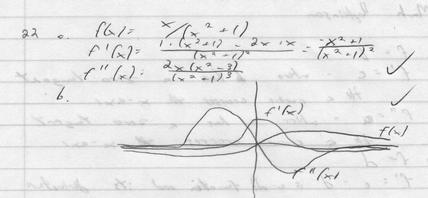 22 a. f(x) = x/(x²+1)
f'(x) = 1·(x²+1) - 2x·x / (x²+1)² = -x²+1 / (x²+1)²
f''(x) = 2x(x²-3) / (x²+1)³
b.
f'(x)
f(x)
f''(x)